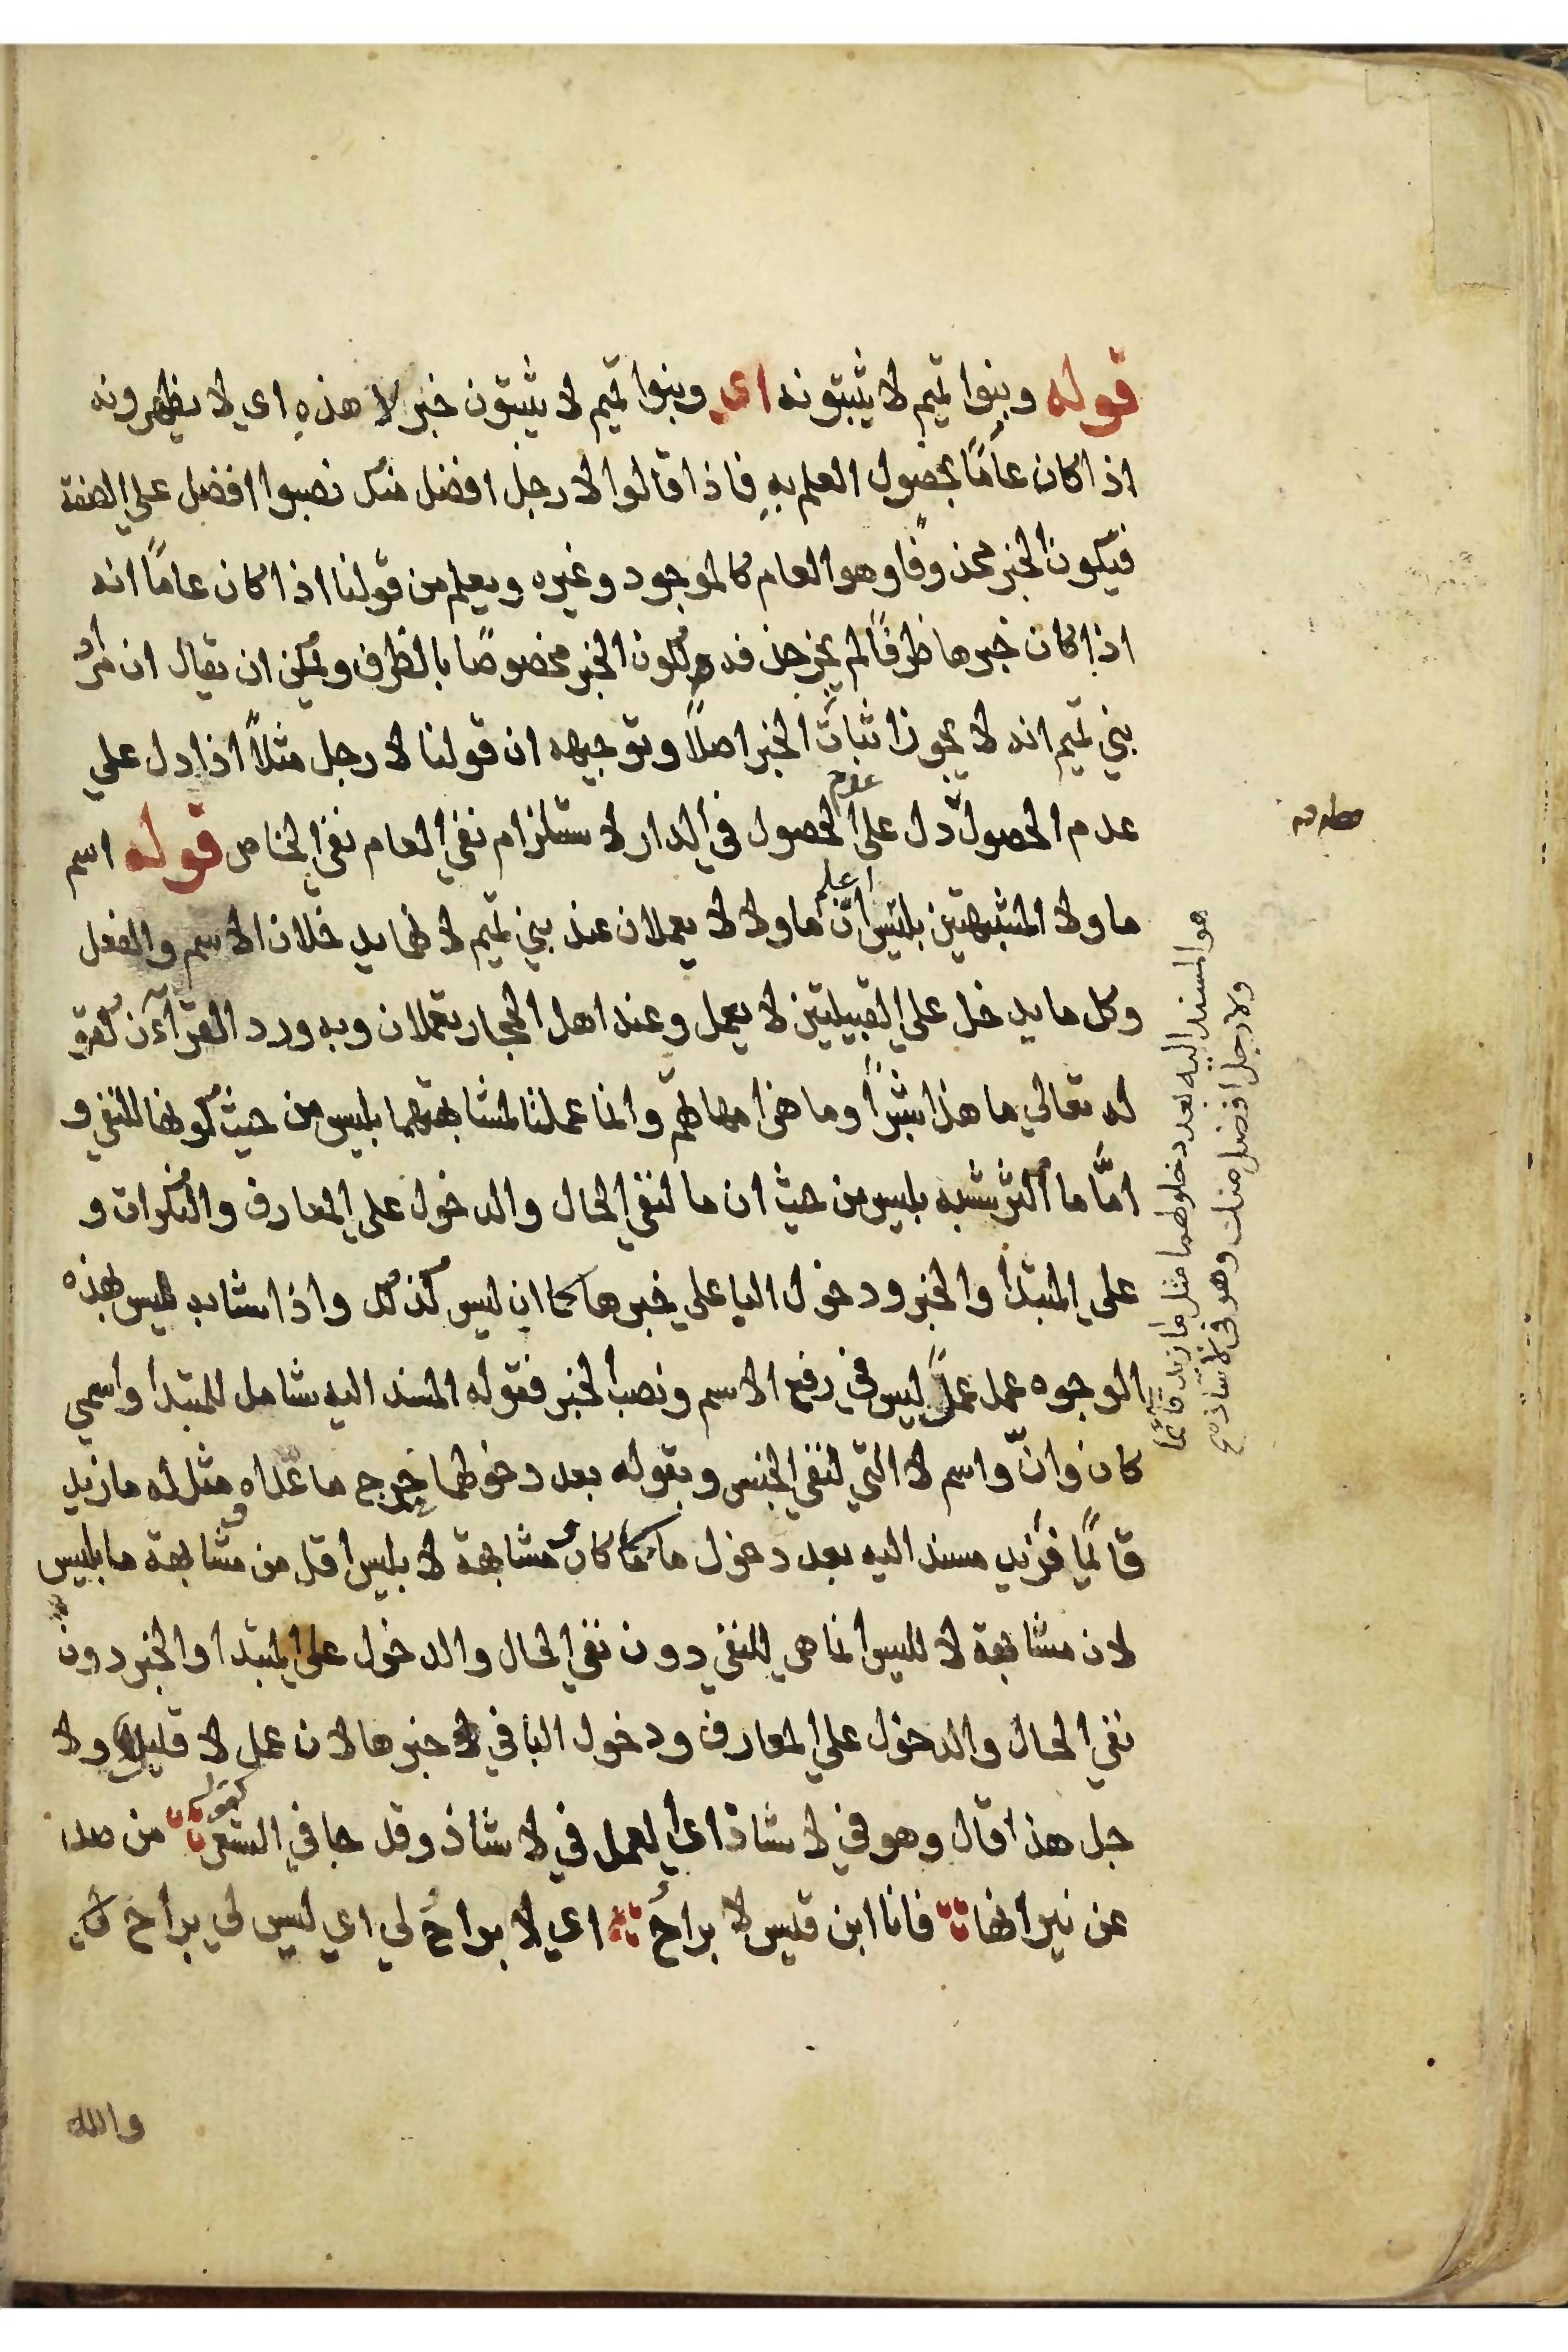 قوله وبنوا تميم لا يثبتونه اي وبنوا تميم لا يثبتون خبر لا هذه اي لا يظهرونه
اذا كان عامًا لحصول العلم به فاذا قالوا لا رجل افضل منك نصبوا افضل علي الصفة
فيكون الخبر محذوفًا وهو العام كالموجود وغيره ويعلم من قولنا اذا كان عامًا انه
اذا كان خبرها ظرفًا لم يجز حذفه ويكون الخبر مخصوصًا بالظرف ويمكن ان يقال ان مراد
بني تميم انه لا يجوز اثبات الخبر اصلًا وتوجيهه ان قولنا لا رجل مثلًا اذا دل علي
عدم الحصول دل علي عدم الحصول في الدار لاستلزام نفي العام نفي الخاص قوله اسم
ما ولا المشبهتين بليس اعلم انّ ما ولا لا يعملان عند بني تميم لانهما يدخلان الاسم والفعل
وكل ما يدخل علي القبيلتين لا يعمل وعند اهل الحجاز يعملان وبه ورد القرآن كقو
له تعالي ما هذا بشرًا وما هن امهاتهم وانما عملتا لمشابهتهما بليس من حيث كونهما للنفي و
امّا ما اكثر شبه بليس من حيث ان ما لنفي الحال والدخول علي المعارف والنكرات و
علي المبتدأ والخبر ودخول الباء علي خبرها كما ان ليس كذلك واذا شابه ليس بهذه
الوجوه عمل عمل ليس في رفع الاسم ونصب الخبر فقوله المسند اليه شامل للمبتدأ واسمي
كان وانّ واسم لا التي لنفي الجنس وبقوله بعد دخولهما خرج ما عداه مثله ما زيد
قائمًا فزيد مسند اليه بعد دخول ما كان مشابهة لا بليس اقل من مشابهة ما بليس
لان مشابهة لا لليس انما هي للنفي دون نفي الحال والدخول علي المبتدا والخبر دون
نفي الحال والدخول علي المعارف ودخول البا في خبرها لان عمل لا قليل ولا
جل هذا قال وهو في لا شاذ اي العمل في لا شاذ وقد جا في الشعر كقوله من صد
عن نيرانها فانا ابن قيس لا براحُ اي لا براحُ لي اي ليس لي براح
والله
هو المسند اليه بعد دخولهما مثل ما زيد قائمًا
ولا رجل افضل منك وهو في لا شاذ